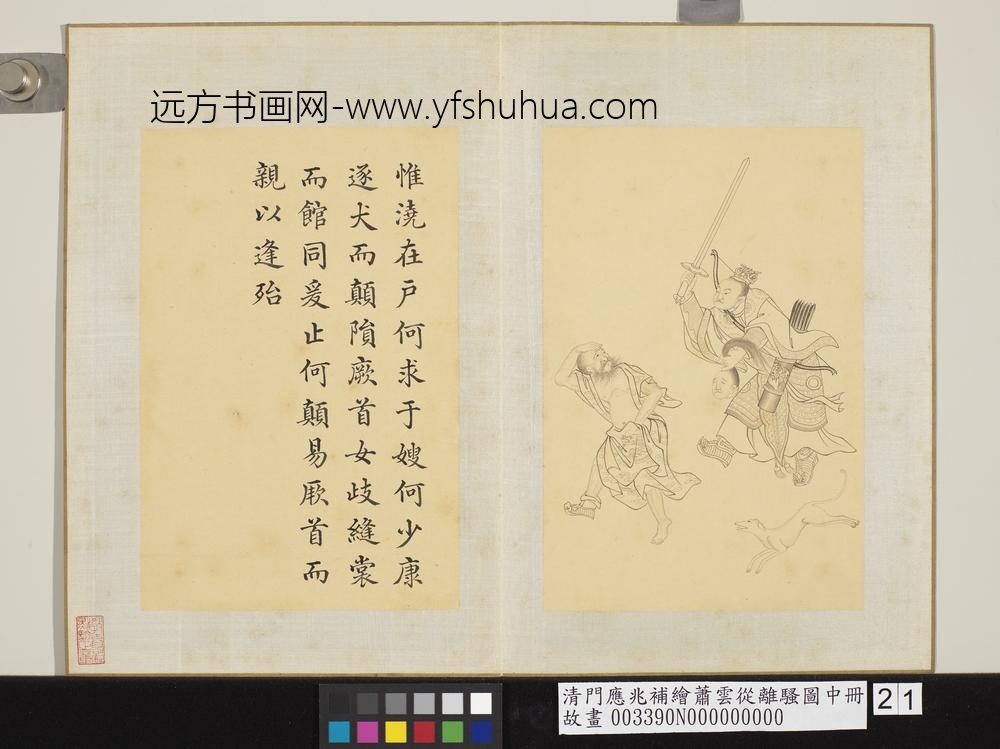 远方书画网-www.yfshuhua.com
惟澆在戶何求于嫂何少康
逐犬而顛隕厥首女歧縫裳
而館同爰止何顛易厥首而
親以逢殆
清門應兆補繪蕭雲從離騷圖中冊
故畫 003390N000000000
21